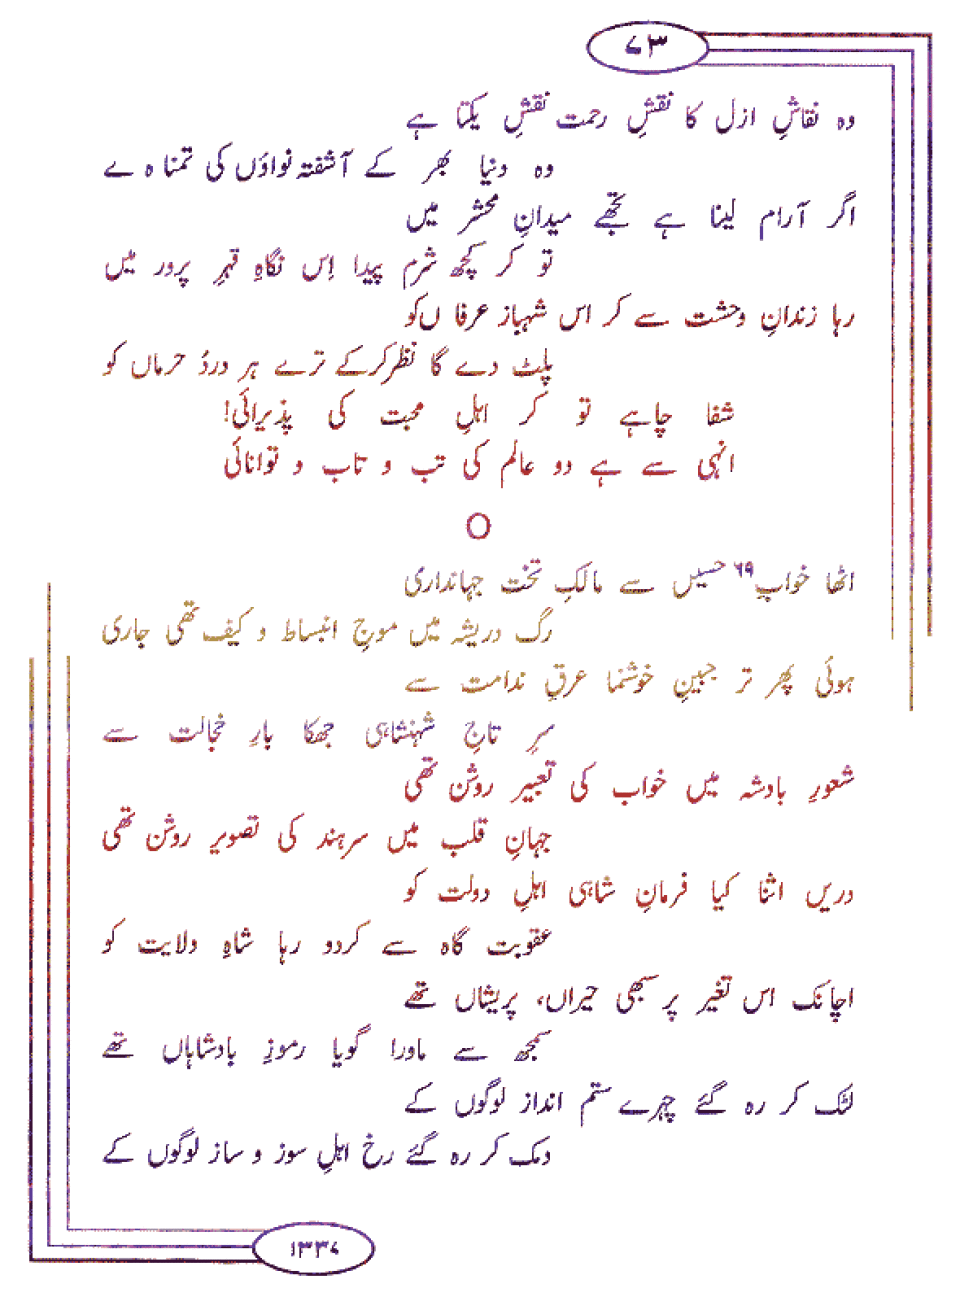 ۷۳
وہ نقاشِ ازل کا نقشِ رحمت نقشِ یکتا ہے
وہ دنیا بھر کے آشفتہ نواؤں کی تمنا ہ ے
اگر آرام لینا ہے تجھے میدانِ محشر میں
تو کر کچھ شرم پیدا اِس نگاہِ قہر پرور میں
رہا زندانِ وحشت سے کر اس شہباز عرفا ں کو
پلٹ دے گا نظر کرکے ترے ہر دردُ حرماں کو
شفا چاہے تو کر اہلِ محبت کی پذیرائی!
انہی سے ہے دو عالم کی تب و تاب و توانائی
اٹھا خوابِ۶۹ حسیں سے مالکِ تخت جہانداری
رگ دریشہ میں موجِ انبساط و کیف تھی جاری
ہوئی پھر تر جبینِ خوشنما عرقِ ندامت سے
سرِ تاجِ شہنشاہی جھکا بارِ خجالت سے
شعورِ بادشہ میں خواب کی تعبیر روشن تھی
جہانِ قلب میں سرہند کی تصویر روشن تھی
دریں اثنا کیا فرمانِ شاہی اہلِ دولت کو
عقوبت گاہ سے کردو رہا شاہِ ولایت کو
اچانک اس تغیر پر سبھی حیراں، پریشاں تھے
سمجھ سے ماورا گویا رموزِ بادشاہاں تھے
لٹک کر رہ گئے چہرے ستم انداز لوگوں کے
دمک کر رہ گئے رخ اہلِ سوز و ساز لوگوں کے
۱۳۳۷